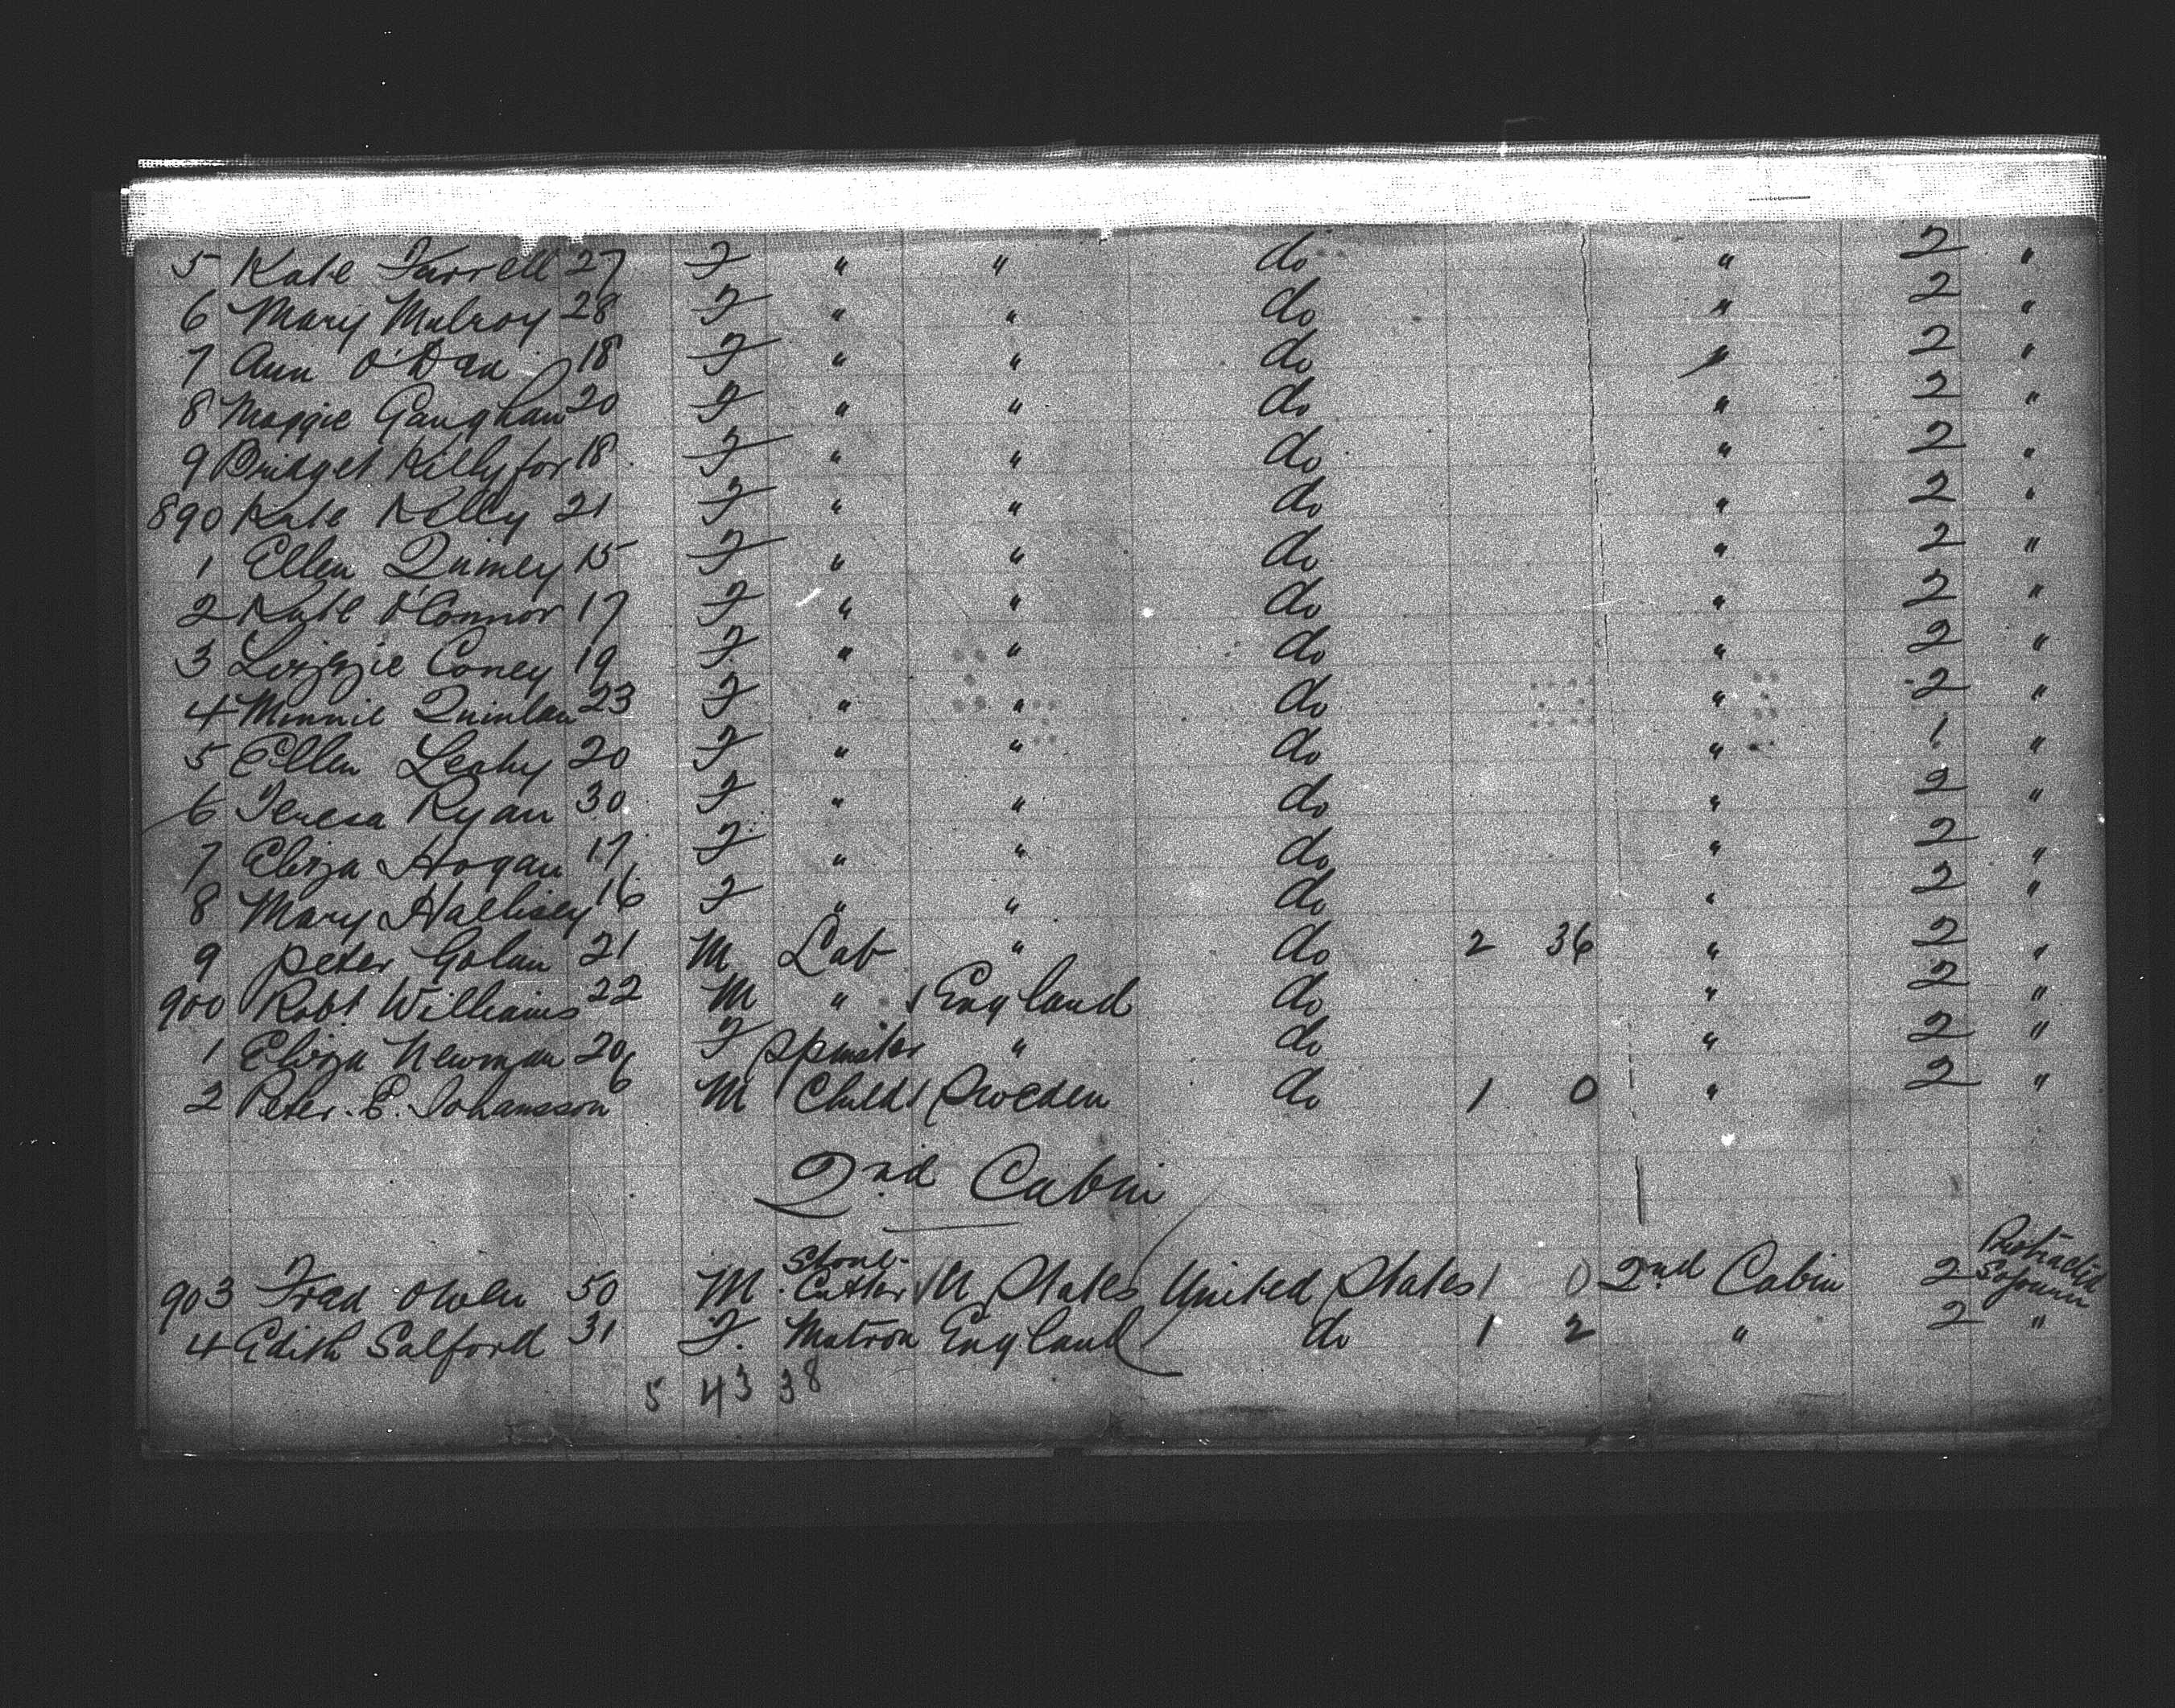 5 Kate Farrell 27 F " " do " 2 "
6 Mary Mulroy 28 F " " do " 2 "
7 Ann O'Dea 18 F " " do " 2 "
8 Maggie Gaughan 20 F " " do " 2 "
9 Bridget 18 F " " do " 2 "
890 Kate Kelly 21 F " " do " 2 "
1 Ellen 15 F " " do " 2 "
2 Kate O'Connor 17 F " " do " 2 "
3 Lizzie Coney 19 F " " do " 2 "
4 Minnie Quinlan 23 F " " do " 2 "
5 Ellen Leahy 20 F " " do " 1 "
6 Teresa Ryan 30 F " " do " 2 "
7 Eliza Hogan 17 F " " do " 2 "
8 Mary Hallisey 16 F " " do " 2 "
9 Peter Golan 21 M Lab " do 2 36 " 2 "
900 Robt Williams 22 M " England do " 2 "
1 Eliza Newman 20 F Spinster " do " 2 "
2 Peter. E. Johansson 6 M Child Sweden do 1 0 " 2 "
2nd Cabin
903 Fred Owen 50 M. Stone-Cutter U States United States 1 0 2nd Cabin 2 Protracted Sojourn
4 Edith Salford 31 F. Matron England do 1 2 " 2 "
5 43 38